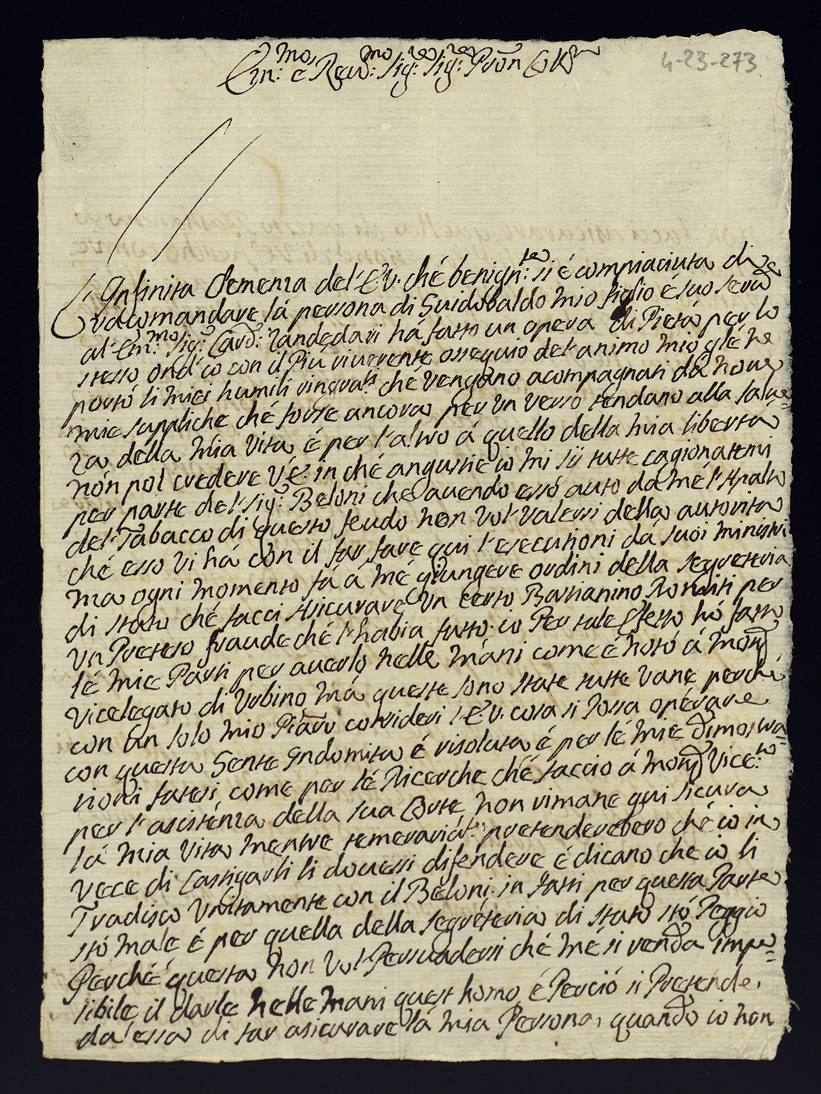 Em:mo e Rev:mo Sig:re Sig:re Pron Col:mo
4-23-273
L'Infinita Clemenza del' E.V. ché benign:te si é compiaciuta di
racomandare lá persona di Guidobaldo mio figlio e suo serv:re
al' Em:mo Sig:r Card: Zandedari há fatto un opera di Pietá per lo
stesso ond'io con il Piú riverente ossequio del' animo mio gle ne
porto li miei humili ringrat:ti che vengono acompagnati da nove
mie suppliche ché forse ancora per un verso tendano alla salve=
za della mia vita é per l'altro á quello della mia liberta
nón pol credere V.E. in ché angustie io mi sij tutte cagionatemi
per parte del Sig:r Beloni che avendo esso auto da mé l'Apalto
del Tabacco di questo feudo non vol valersi della autorita
ché esso vi há con il far fare qui l'esecutioni da suoi ministri
ma ogni momento fa á mé giungere ordini della segreteria
di stato ché facci asicurare un certo Bastianino Ronditi per
un Preteso fraude ché l'habia fatto. io Per tale effetto hó fatto
lé mie Parti per averlo nelle mani come é noto á mons:
vicelegato di Urbino má queste sono state tutte vane perché
con un solo mio consideri l'E.V. cosa si possa operare
con questa Gente Indomita é risoluta é per lé mie dimostra=
tioni fatesi come per lé Ricerche ché faccio á mons: Vice:to
per l'asistenza della sua Corte non rimane qui sicura
lá mia vita mentre temerariá:te pretenderebero ché io in
vece di Castigarli li dovessi difendere é dicano che io li
Tradisco unitamente con il Beloni, in fatti per questa Parte
stó male é per quella della segréteria di stato stó Peggio
Perché questa non vol Persuadersi ché me si renda impo=
sibile il darle nelle mani quest homo, é Perció si Pretende
da essa di far asicurare lá mia Persona, quando io non